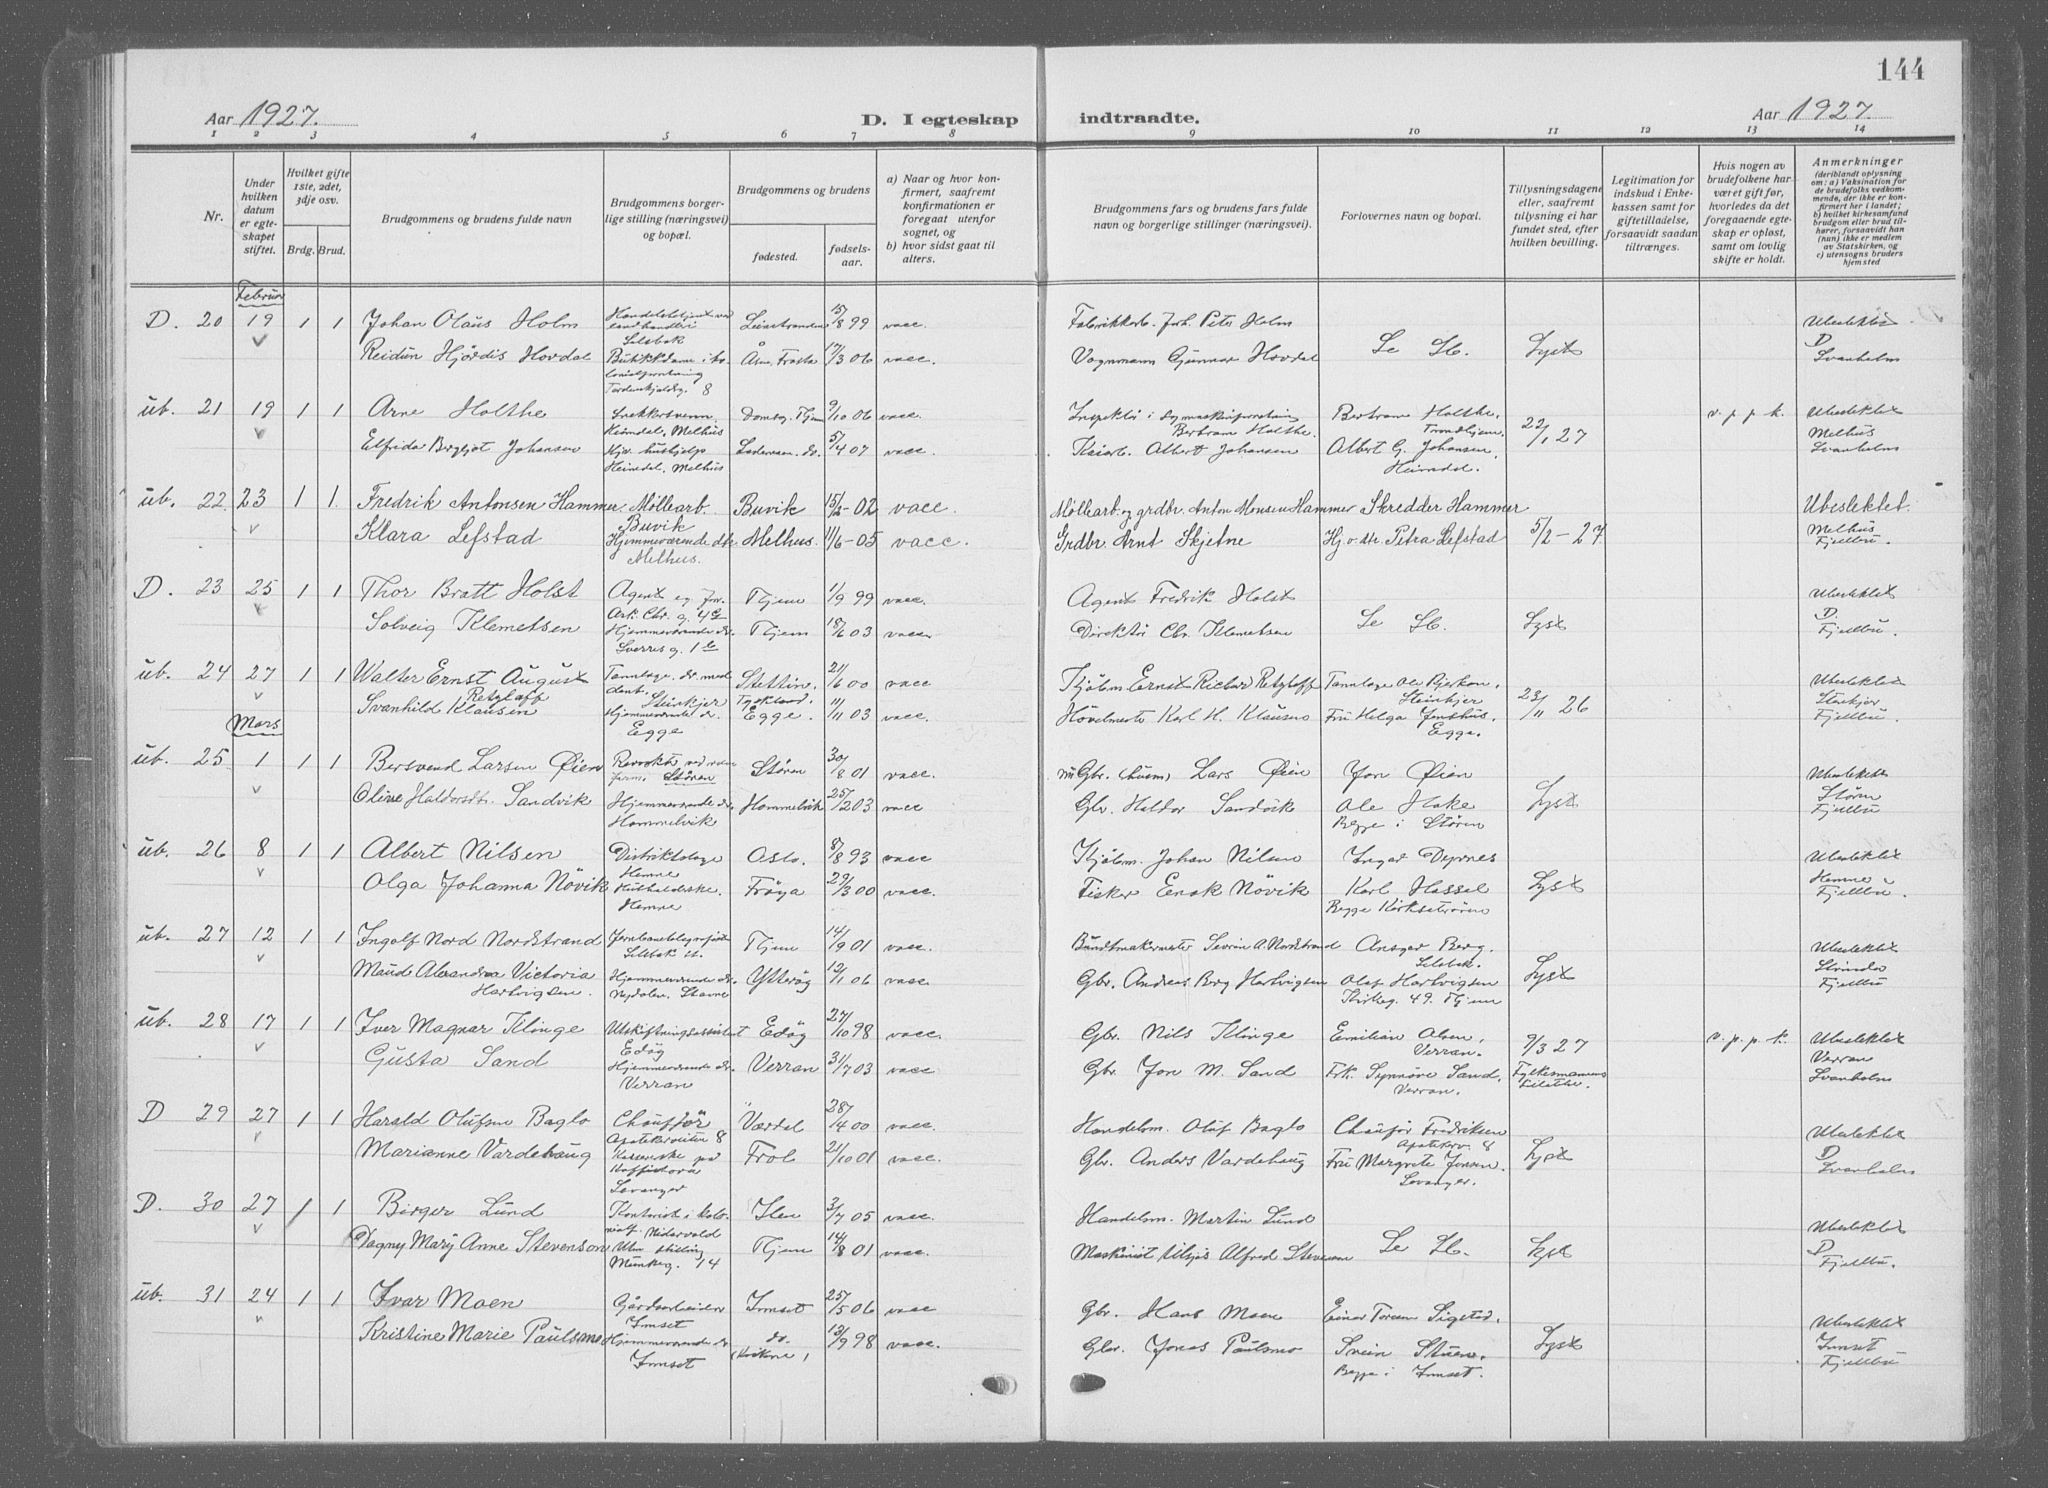 144
Aar 1927.
D. I egteskap indtraadte.
Aar 1927.
1 2 3 4 5 6 7 8 9 10 11 12 13 14
Nr.
Under hvilken datum er egteskapet stiftet.
Hvilket gifte 1ste, 2det, 3dje osv.
Brdg. Brud.
Brudgommens og brudens fulde navn
Brudgommens borgerlige stilling (næringsvei) og bopæl.
Brudgommens og brudens
fødested.
fødselsaar.
a) Naar og hvor konfirmert, saafremt konfirmationen er foregaat utenfor sognet, og
b) hvor sidst gaat til alters.
Brudgommens fars og brudens fars fulde navn og borgerlige stillinger (næringsvei).
Forlovernes navn og bopæl.
Tillysningsdagene eller, saafremt tillysning ei har fundet sted, efter hvilken bevilling.
Legitimation for indskud i Enkekassen samt for giftetilladelse, forsaavidt saadan tiltrænges.
Hvis nogen av brudefolkene har været gift før, hvorledes da det foregaaende egteskap er opløst, samt om lovlig skifte er holdt.
Anmerkninger (deriblandt oplysning om: a) Vaksination for de brudefolks vedkommende, der ikke er konfirmert her i landet; b) hvilket kirkesamfund brudgom eller brud tilhører, forsaavidt han (hun) ikke er medlem av Statskirken, og c) utensogns bruders hjemsted
Februar
D. 20 19 1 1 Johan Olaus Holm Leinstranden 15/8 99 vacc. Fabrikkarb. Joh. Peter Holm Ubeslektet
Reidun Hjördis Hovdal Butikkdame Åsen, Frosta 17/3 06 vacc. Vognmann Gunnar Hovdal Se Sb. Lyst D Svanholm
8
üb. 21 19 1 1 Arne Holthe Snekkersvenn Domsog. Thjem 9/10 06 vacc. Bertram Holthe. Bertram Holthe, Trondhjem. 22/1 27 v. p. p. k. Ubeslektet
Heimdal, Melhus Melhus
Elfrida Bergljot Johansen Hjv. hushjelp Lademoen. do. 5/4 07 vacc. Albert Johansen Albert G. Johansen, Svanholm
Heimdal, Melhus Heimdal.
üb. 22 23 1 1 Fredrik Antonsen Hammer. Møllearb. Buvik Buvik 15/2-02 vacc. Møllearb. og grdbr. Anton Monsen Hammer Skredder Hammer 5/2-27 Ubeslektet.
Klara Lefstad Hjemmeværende dtr. Melhus. Melhus. 11/6-05 vacc. Grdbr. Arnt Skjetne Hj.v. str. Petra Lefstad Melhus Fjellbu.
D. 23 25 1 1 Thor Bratt Holst Agent Thjem 1/9 99 vacc. Agent Fredrik Holst Ubeslektet
Solveig Klemetsen Hjemmeværende dr. Sverres g. 1 Thjem 18/6 03 vacc. Direktör Chr. Klemetsen Se Sb. Lyst D. Fjellbu.
üb. 24 27 1 1 Walter Ernst August Retzlaff Steinkjer Stettin, Tyskland. 21/6 00 vacc Kjöbm. Ernst Richard Retzlaff Tannlæge Ole Bjerkan, Steinkjer 23/11 26 Ubeslektet Steinkjer
Svanhild Klausen Hjemmeværende dr. Egge Egge. 11/11 03 vacc. Hövelmester Karl H. Klausen Fru Helga Jenshus, Egge. Fjellbu.
Mars
üb. 25 1 1 1 Bersvend Larsen Øien Støren Støren 30/8 01 vacc. Gbr. Lars Øien Jon Øien Ubeslektet
Olive Haldorsdt. Sandvik Hjemmeværende dr. Hommelvik Hommelvik 25/2 03 vacc Gbr. Haldor Sandvik Ole Hoke Begge i Stören Lyst Støren Fjellbu
üb. 26 8 1 1 Albert Nilsen Distriktslæge Hemne Oslo. 8/8 93 vacc Kjöbm. Johan Nilsen Ingar Ubeslektet
Olga Johanna Növik Hemne Fröya 29/3 00 vacc. Fisker Enok Növik Karl Hassel Begge Kirksæterören Lyst Hemne Fjellbu.
üb. 27 12 1 1 Ingolf Nord Nordstrand Selsbak st. Thjem 14/9 01 vacc. Bundtmakermester Severin A. Nordstrand Ansgar Berg. Selsbak. Ubeslektet
Maude Alexandra Victoria Hartvigsen. Hjemmeværende dr. Nydalen. Stavne Ytteröy 12/1 06 vacc. Gbr. Andreas Berg Hartvigsen Olaf Hartvigsen 49. Thjem Lyst Strinda Fjellbu
üb. 28 17 1 1 Iver Magnar Klinge Utskiftningsassistent Edöy Edöy 27/10 98 vacc. Gbr. Nils Klinge Emilian Olsen, Verran. 9/3 27 v. p. p. k. Ubeslektet
Gusta Sand Hjemmeværende dr. Verran Verran 31/7 03 vacc. Gbr. Jon M. Sand Frk. Synnöve Sand, Verran. Fylkesmannens Verran Svanholm
D 29 27 1 1 Harald Olufsen Baglo Chaufför 8 Værdal 28/4 00 vacc. Handelsm. Oluf Baglo Chauför Fredriksen 8 Ubeslektet
Marianne Vardehaug Levanger Frol 21/10 01 vacc. Gbr. Anders Vardehaug Fru Margrete Jensen. Levanger. Lyst D Svanholm
D. 30 27 1 1 Birger Lund Kontorist Ilen 3/7 05 vacc. Handelsm. Martin Lund Ubeslektet
Dagny Mary Anne Stevenson Uten stilling Munkeg. 14 Thjem 14/8 01 vacc. Maskinist Alfred Stevenson Se Sb. Lyst D Fjellbu.
üb. 31 24 1 1 Ivar Moen Gårdsarbeider Innset Innset 25/5 06 vacc Gbr. Hans Moen Einar Ubeslektet
Kristine Marie Paulsmo Hjemmeværende dr Innset do. (Kvikne) 12/9 98 vacc. Gbr. Jonas Paulsmo Svein Stuen. Begge i Innset. Lyst Innset Fjellbu